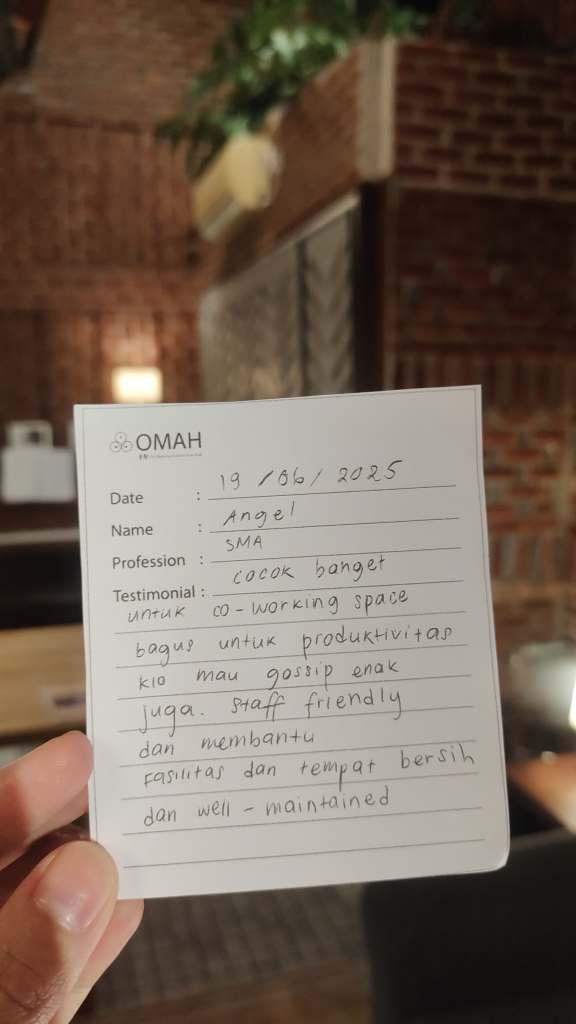 OMAH
Date : 19 / 06 / 2025
Name : Angel
Profession : SMA
Testimonial : cocok banget
untuk co-working space
bagus untuk produktivitas
klo mau gossip enak
juga. staff friendly
dan membantu
Fasilitas dan tempat bersih
dan well-maintained